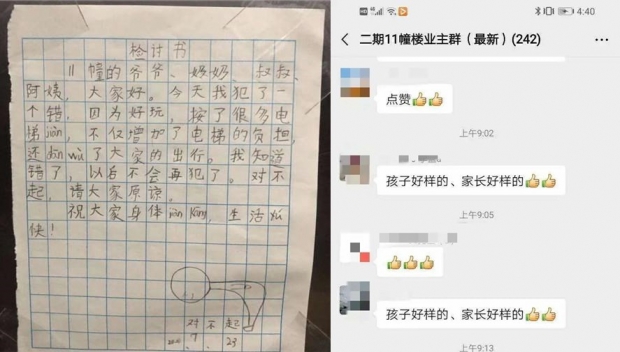 检讨书
11幢的爷爷、奶奶、叔叔、
阿姨，大家好。今天我犯了一
个错，因为好玩，按了很多电
梯jiàn，不仅增加了电梯的负担，
还dān wù了大家的出行。我知道
错了，以后不会再犯了。对不
起，请大家原谅。
祝大家身体jiàn kāng，生活yú
快！
对不起
7 23
4:40
二期11幢楼业主群（最新）(242)
点赞👍👍
上午9:02
孩子好样的、家长好样的👍👍
上午9:05
👍👍👍
孩子好样的、家长好样的👍👍
上午9:13